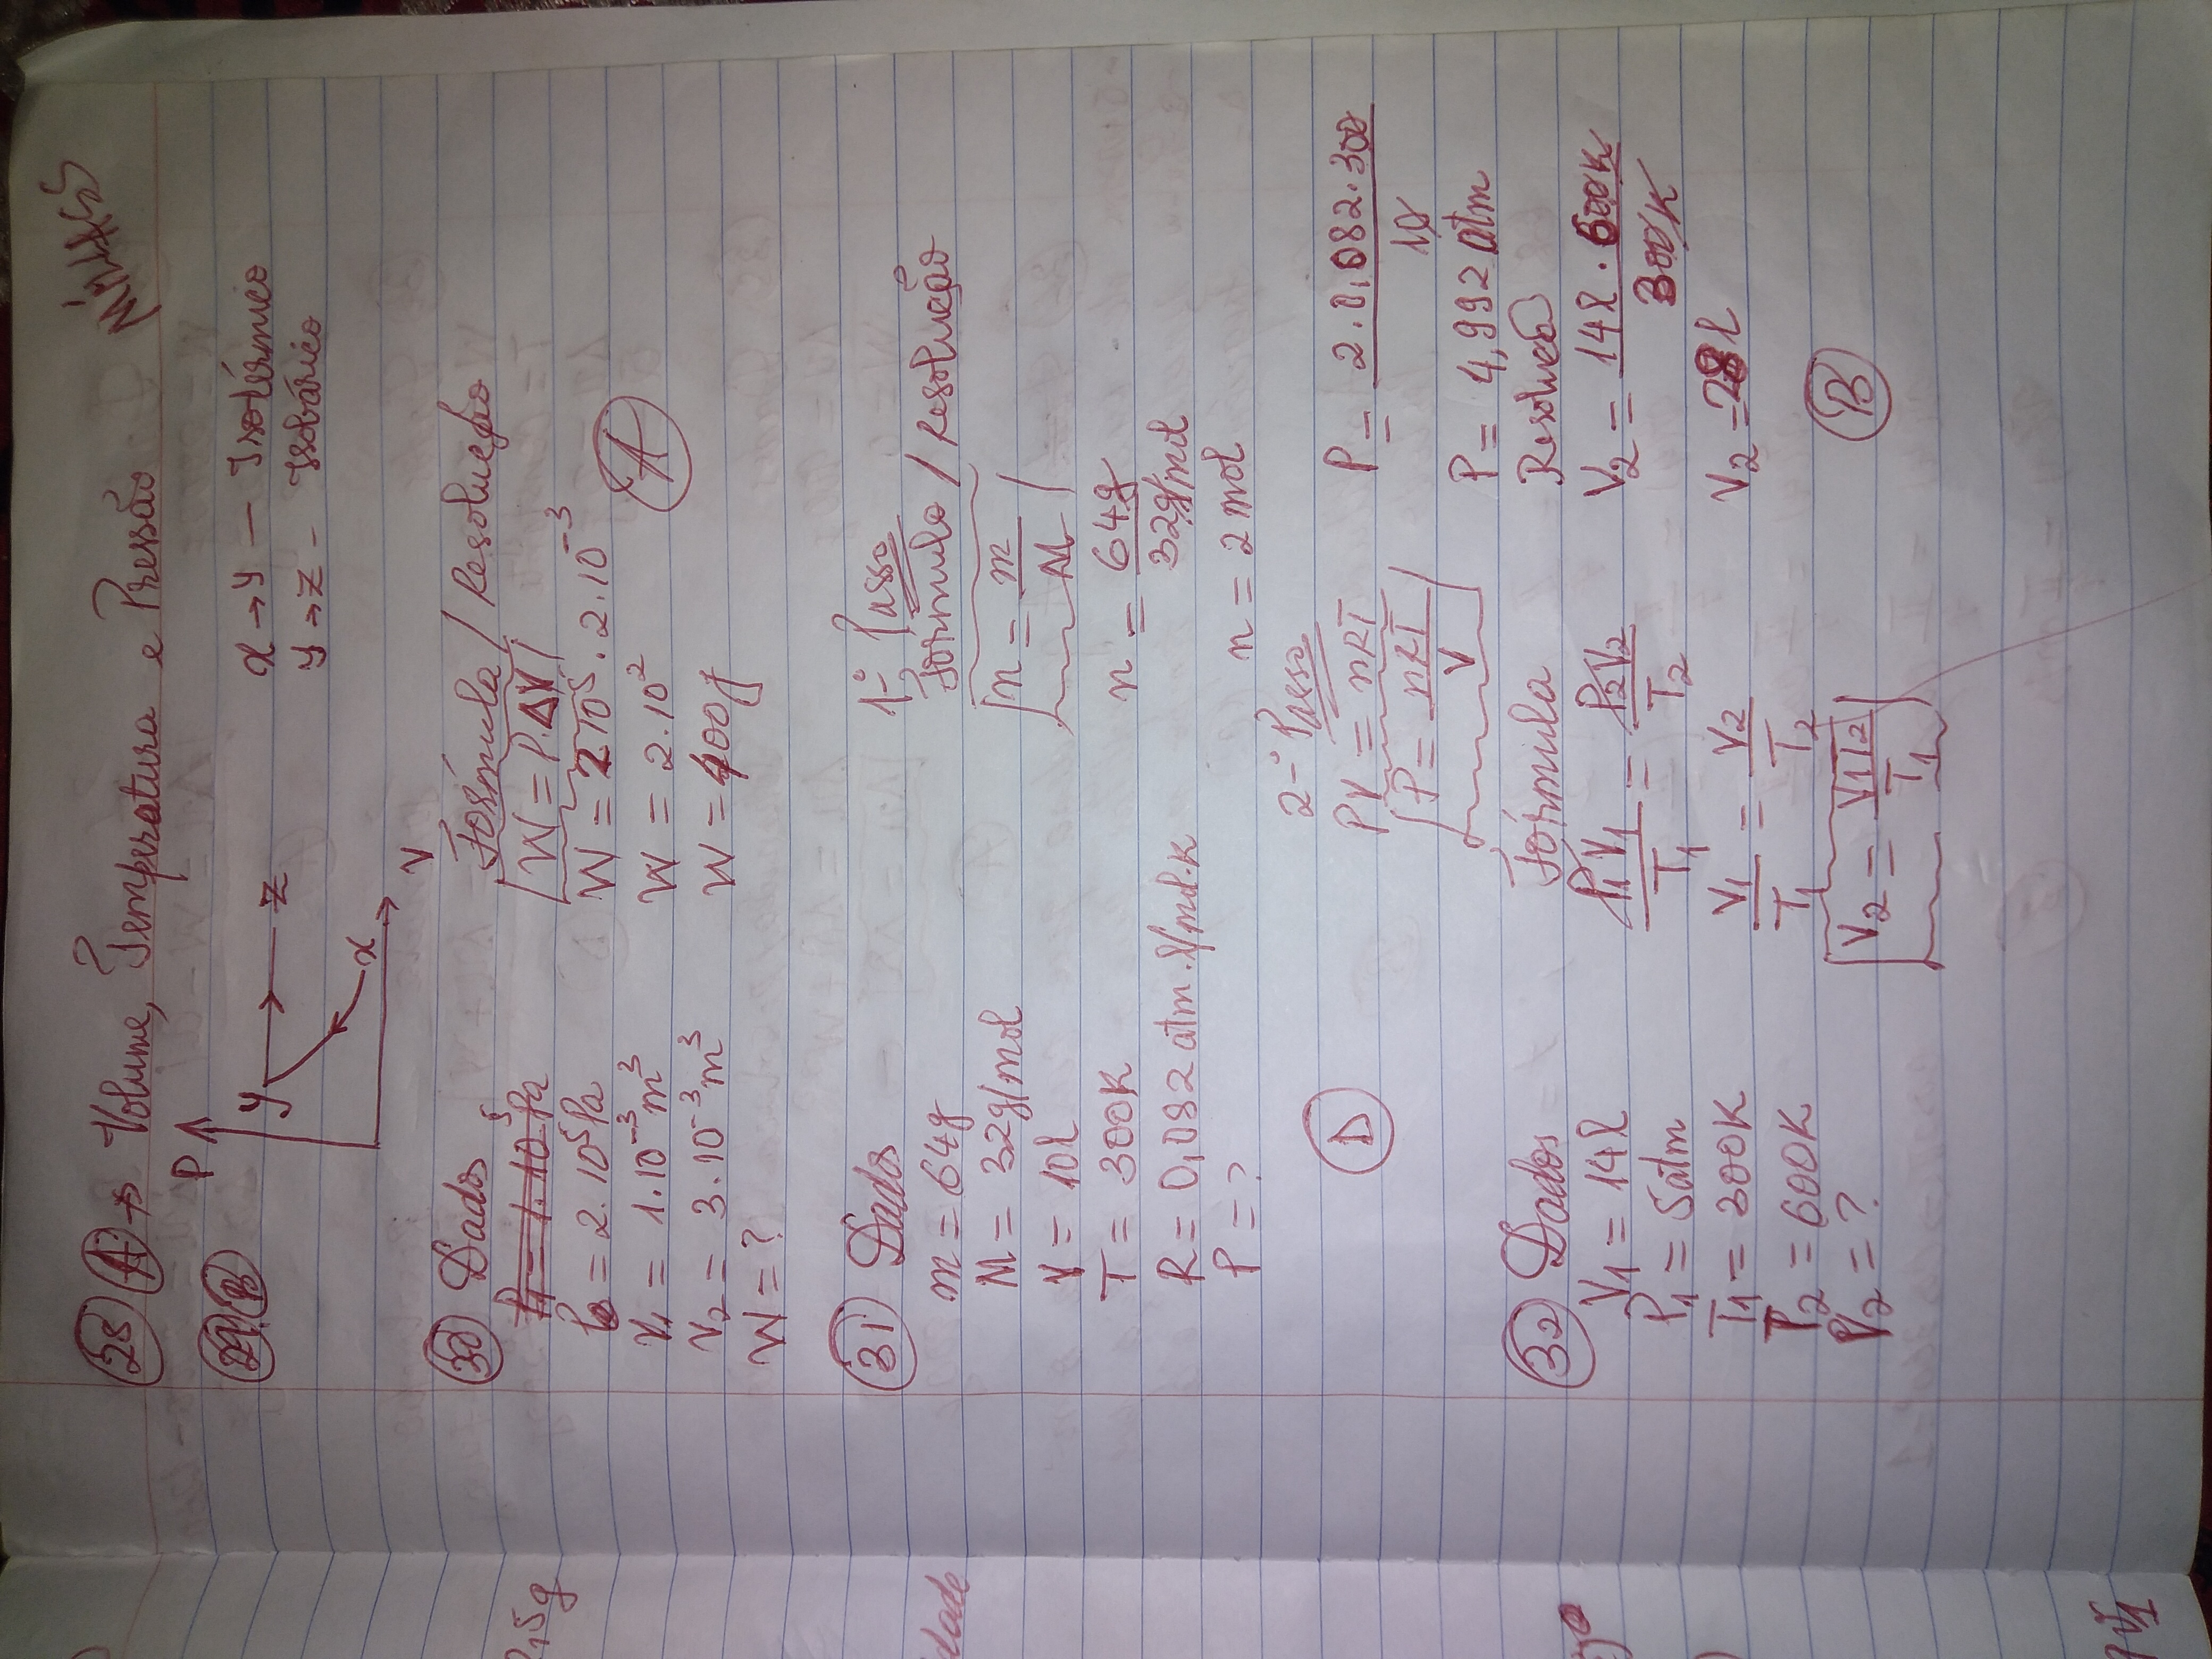 28 A → Volume, Temperatura e Pressão
29 B
P
y
z
x
V
x → y — Isotérmico
y → z - Isobárico
30 Dados
P1 = 1.10⁵Pa
P = 2.10⁵Pa
V1 = 1.10⁻³m³
V2 = 3.10⁻³m³
W = ?
Fórmula / Resolução
W = P.ΔV
W = 2 10⁵.2.10⁻³
W = 2.10²
W = 400J
A
31 Dados
m = 64g
M = 32g/mol
V = 10l
T = 300K
R = 0,082 atm.l/mol.K
P = ?
1-º Passo
Fórmula / Resolução
n = m/M
n = 64g/32g/mol
n = 2 mol
2-º Passo
PV = nRT
P = nRT/V
P = 2.0,082.300/10
P = 4,992 atm
D
32 Dados
V1 = 14l
P1 = 5atm
T1 = 300K
T2 = 600K
V2 = ?
Fórmula
P1V1/T1 = P2V2/T2
V1/T1 = V2/T2
V2 = V1T2/T1
Resolução
V2 = 14l.600K/300K
V2 = 28l
B
,5g
dade
V1